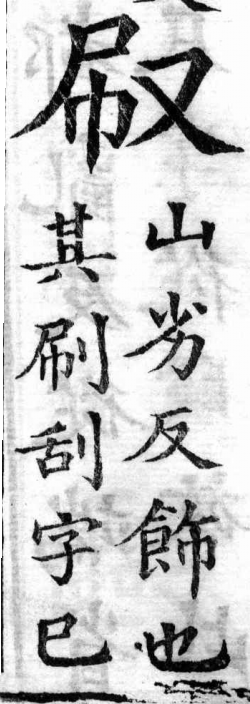 㕞
山劣反飾也
其刷刮字巳